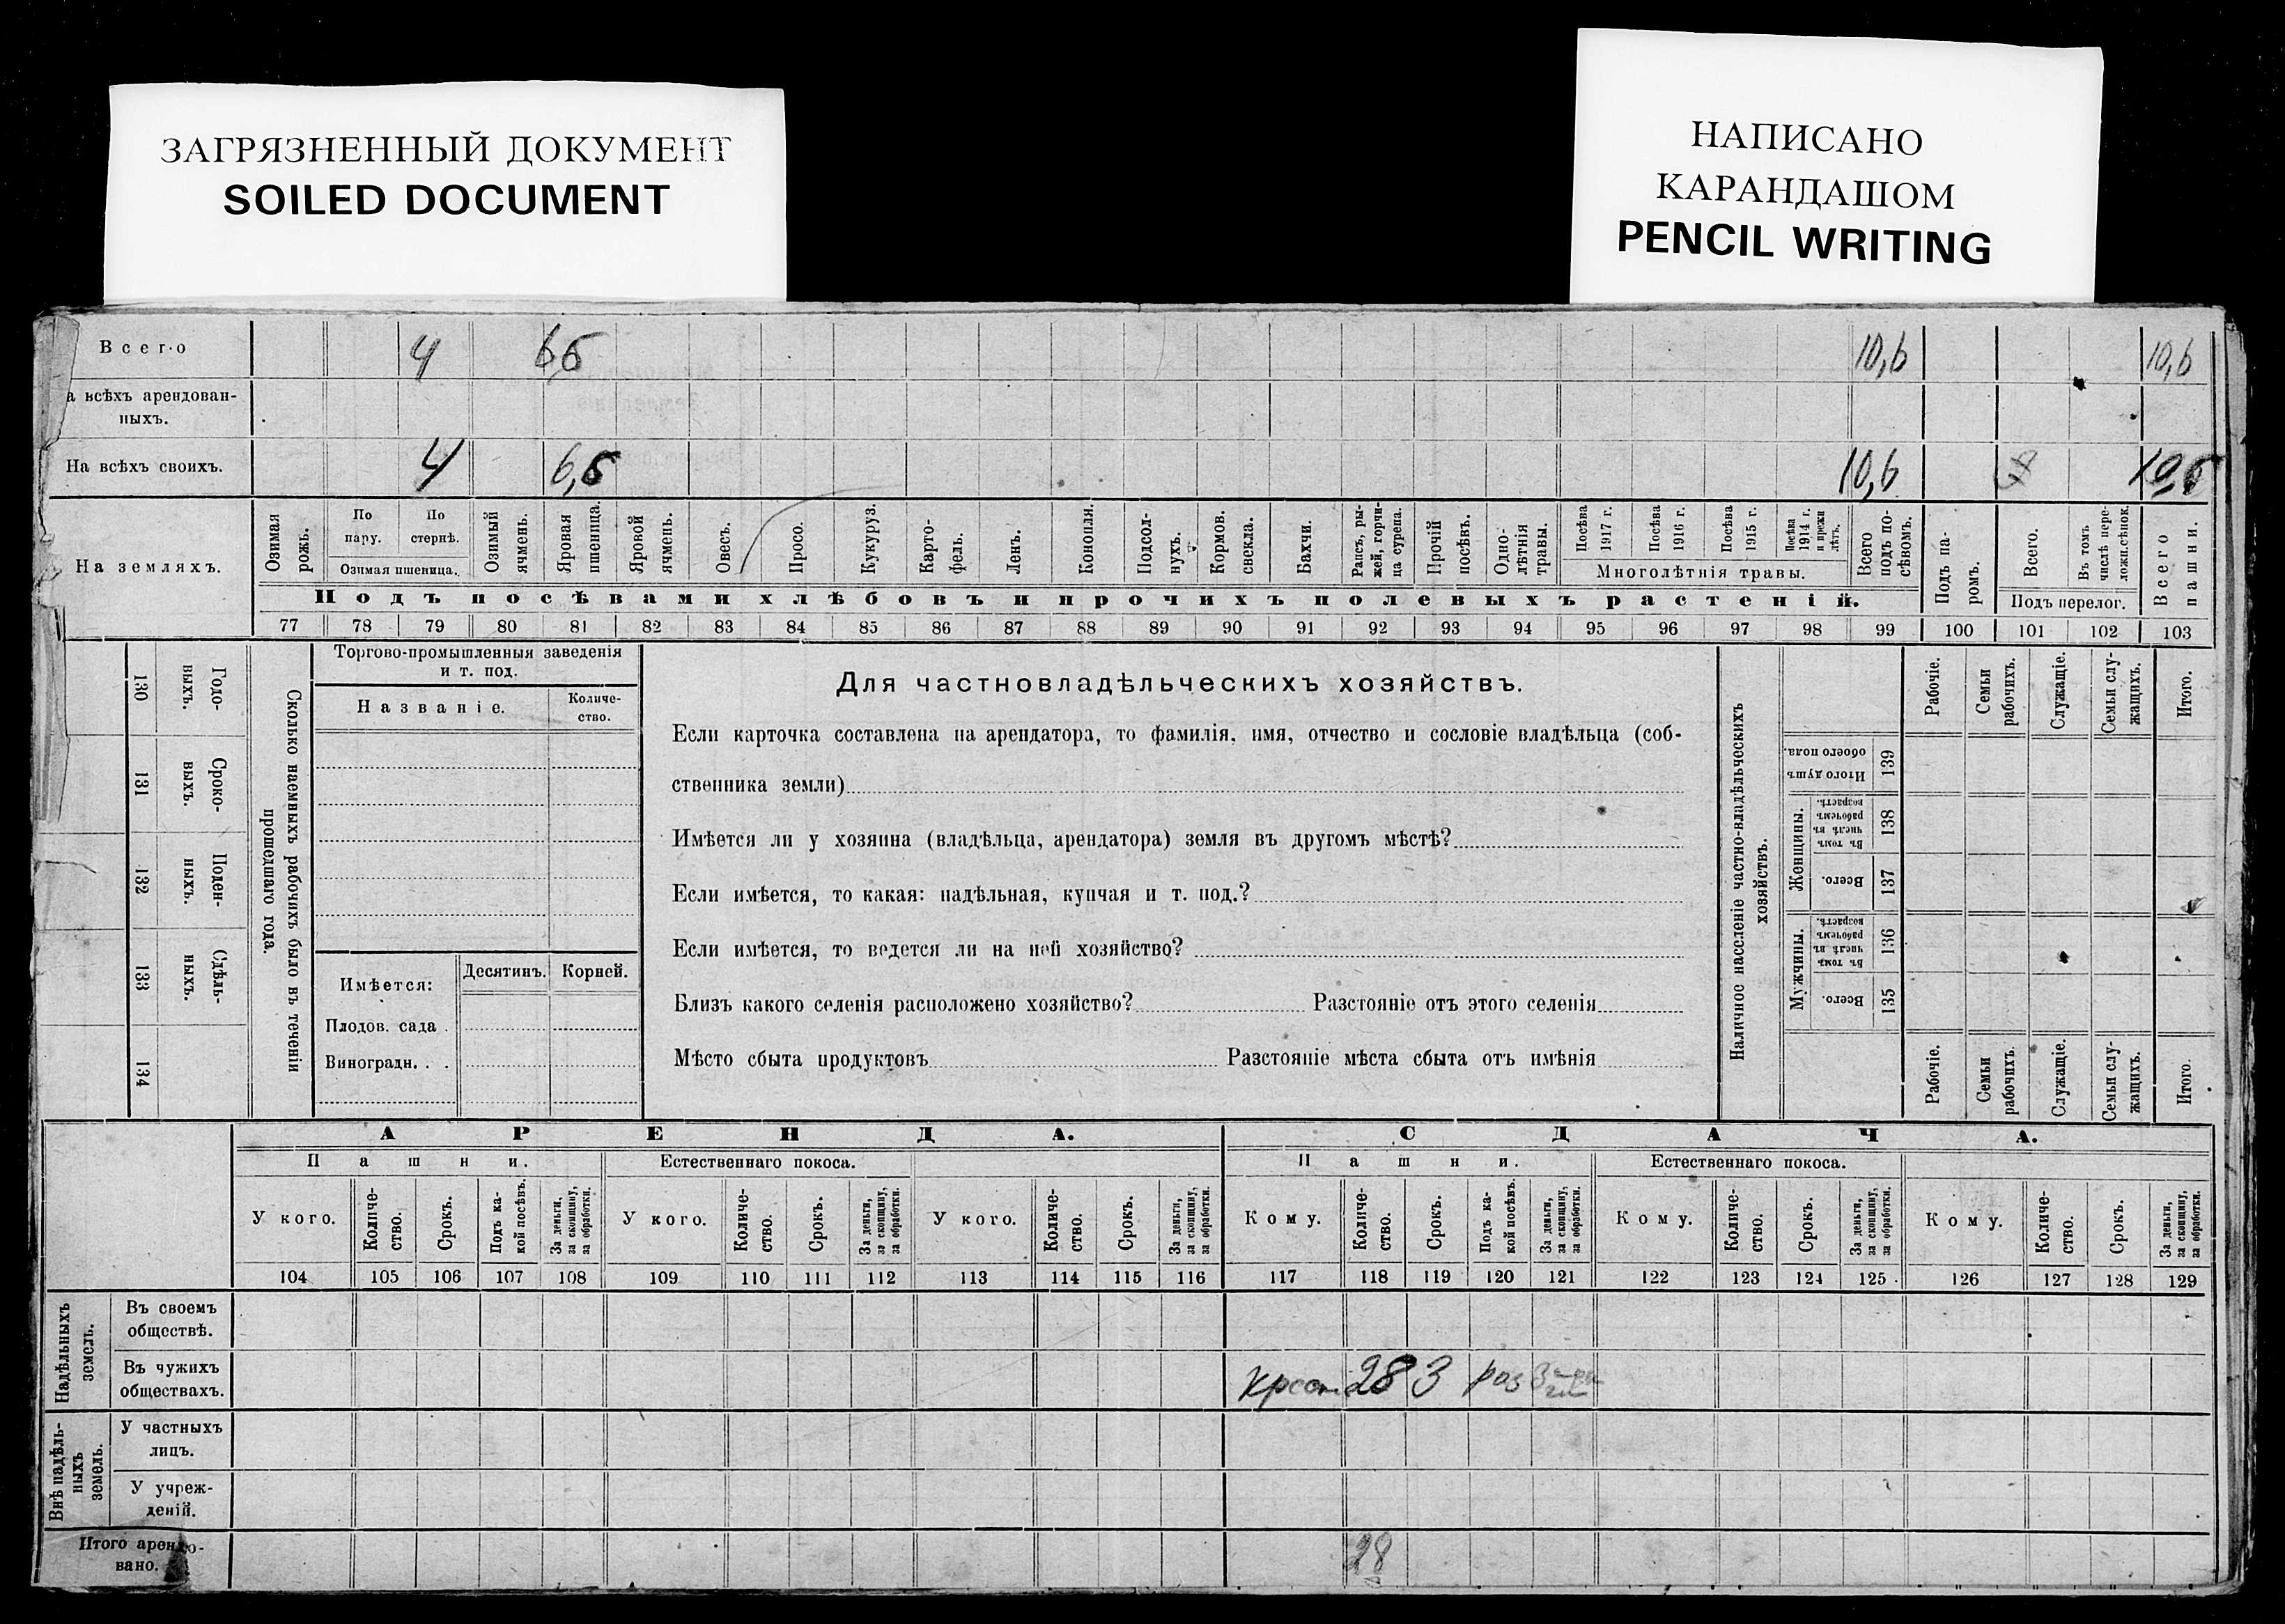 ЗАГРЯЗНЕННЫЙ ДОКУМЕНТ
SOILED DOCUMENT
НАПИСАНО
КАРАНДАШОМ
PENCIL WRITING
Всего 4 6,6 10,6 10,6
а всѣхъ арендован-
ныхъ.
На всѣхъ своихъ. 4 6,6 10,6 10,6
На земляхъ.
Озимая рожь.
По пару.
По стернѣ.
Озимая пшеница.
Озимый ячмень.
Яровая пшеница.
Яровой ячмень.
Овесъ.
Просо.
Кукуруз.
Карто-
фель.
Ленъ.
Конопля.
Подсол-
нухъ.
Кормов. свекла.
Бахчи.
Рапсъ, ры-
жей, горчи-
ца сурепа.
Прочій посѣвъ.
Одно-
лѣтнія травы.
Посѣва 1917 г.
Посѣва 1916 г.
Посѣва 1915 г.
Посѣва 1914 г. и прежн лѣтъ.
Многолѣтнія травы.
Всего подъ по-
сѣвомъ.
Подъ па-
ромъ.
Всего.
Въ томъ числѣ пере-
ложн.сѣнок.
Подъ перелог.
Всего пашни.
Подъ посѣвами хлѣбовъ и прочихъ полевыхъ растеній.
77 78 79 80 81 82 83 84 85 86 87 88 89 90 91 92 93 94 95 96 97 98 99 100 101 102 103
130 Годо-
выхъ.
131 Сроко-
выхъ.
132 Поден-
ныхъ.
133 Сдѣль-
ныхъ.
134
Сколько наемныхъ рабочихъ было въ теченіи
прошедшаго года.
Торгово-промышленныя заведенія
и т. под.
Названіе.
Количе-
ство.
Имѣется: Десятинъ. Корней.
Плодов. сада .
Виноградн. . .
Для частновладѣльческихъ хозяйствъ.
Если карточка составлена на арендатора, то фамилія, имя, отчество и сословіе владѣльца (соб-
ственника земли)
Имѣется ли у хозяина (владѣльца, арендатора) земля въ другомъ мѣстѣ?
Если имѣется, то какая: надѣльная, купчая и т. под.?
Если имѣется, то ведется ли на ней хозяйство?
Близъ какого селенія расположено хозяйство? Разстояніе отъ этого селенія
Мѣсто сбыта продуктовъ Разстояніе мѣста сбыта отъ имѣнія
Наличное населеніе частно-владѣльческихъ
хозяйствъ.
Рабочіе.
Семьи рабочихъ.
Служащіе.
Семьи слу-
жащихъ.
Итого.
Итого душъ обоего пола. 139
Женщины.
Въ томъ числѣ въ рабочемъ возрастѣ. 138
Всего. 137
Мужчины.
Въ томъ числѣ въ рабочемъ возрастѣ. 136
Всего. 135
Рабочіе.
Семьи рабочихъ.
Служащіе.
Семьи слу-
жащихъ.
Итого.
АРЕНДА. СДАЧА.
Пашни. Естественнаго покоса. Пашни. Естественнаго покоса.
У кого.
Количе-
ство.
Срокъ.
Подъ ка-
кой посѣвъ.
За деньги,
за скопщину,
за обработки.
У кого.
Количе-
ство.
Срокъ.
За деньги,
за скопщину,
за обработки.
У кого.
Количе-
ство.
Срокъ.
За деньги,
за скопщину,
за обработки.
Кому.
Количе-
ство.
Срокъ.
Подъ ка-
кой посѣвъ.
За деньги,
за скопщину,
за обработки.
Кому.
Количе-
ство.
Срокъ.
За деньги,
за скопщину,
за обработки.
Кому.
Количе-
ство.
Срокъ.
За деньги,
за скопщину,
за обработки.
104 105 106 107 108 109 110 111 112 113 114 115 116 117 118 119 120 121 122 123 124 125 126 127 128 129
Надѣльныхъ
земель.
Въ своемъ
обществѣ.
Въ чужихъ
обществахъ.
28 3 раз
Внѣ надѣль-
ныхъ
земель.
У частныхъ
лицъ.
У учреж-
деній.
Итого арендо-
вано.
28